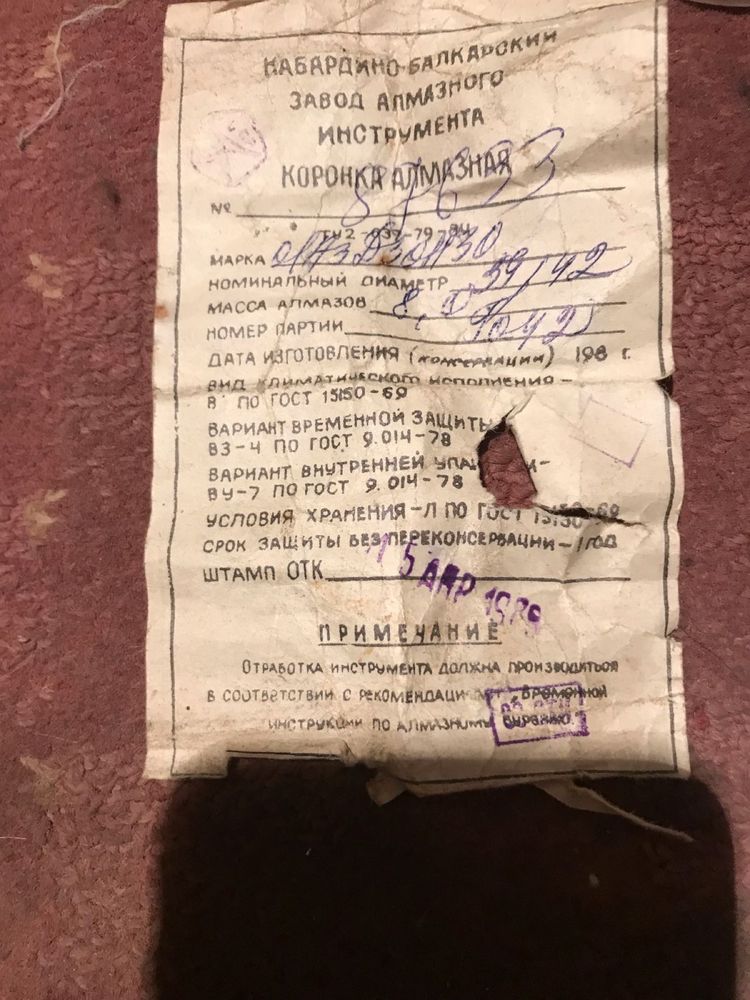 КАБАРДИНО-БАЛКАРСКИЙ
ЗАВОД АЛМАЗНОГО
ИНСТРУМЕНТА
КОРОНКА АЛМАЗНАЯ
№
ТУ2-037-79-
МАРКА
НОМИНАЛЬНЫЙ ДИАМЕТР 59/42
МАССА АЛМАЗОВ 8,
НОМЕР ПАРТИИ
ДАТА ИЗГОТОВЛЕНИЯ (КОНСЕРВАЦИИ) 198 г.
ВИД КЛИМАТИЧЕСКОГО ИСПОЛНЕНИЯ -
В ПО ГОСТ 15150-69
ВАРИАНТ ВРЕМЕННОЙ ЗАЩИТЫ
ВЗ-4 ПО ГОСТ 9.014-78
ВАРИАНТ ВНУТРЕННЕЙ
ВУ-7 ПО ГОСТ 9.014-78
УСЛОВИЯ ХРАНЕНИЯ-Л ПО ГОСТ 15150-69
СРОК ЗАЩИТЫ БЕЗ ПЕРЕКОНСЕРВАЦИИ-1 ГОД
ШТАМП ОТК
5 АПР 1989
ПРИМЕЧАНИЕ
ОТРАБОТКА ИНСТРУМЕНТА ДОЛЖНА ПРОИЗВОДИТЬСЯ
В СООТВЕТСТВИИ С ВРЕМЕННОЙ
ИНСТРУКЦИИ ПО АЛМАЗНОМУ БУРЕНИЮ.